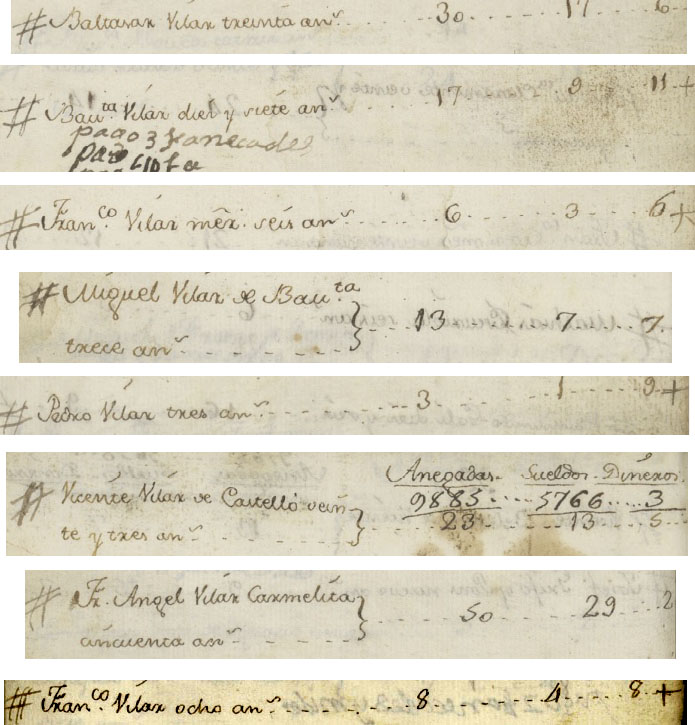 # Baltasar Vilar treinta an.s 30 17 6
# Bau.ta Vilar diez y siete an.s 17 9 11 +
pago 3 hanecades
pago
# Fran.co Vilar mêr. seis an.s 6 3 6 +
# Miguel Vilar de Bau.ta
trece an.s 13 7 7
# Pedro Vilar tres an.s 3 1 9 +
Anegadas. Sueldos. Dineros.
9885 5766 3
# Vicente Vilar de Castelló vein
te y tres an.s 23 13 5
# Fr. Angel Vilar Carmelita
cincuenta an.s 50 29 2
# Fran.co Vilar ocho an.s 8 4 8 +